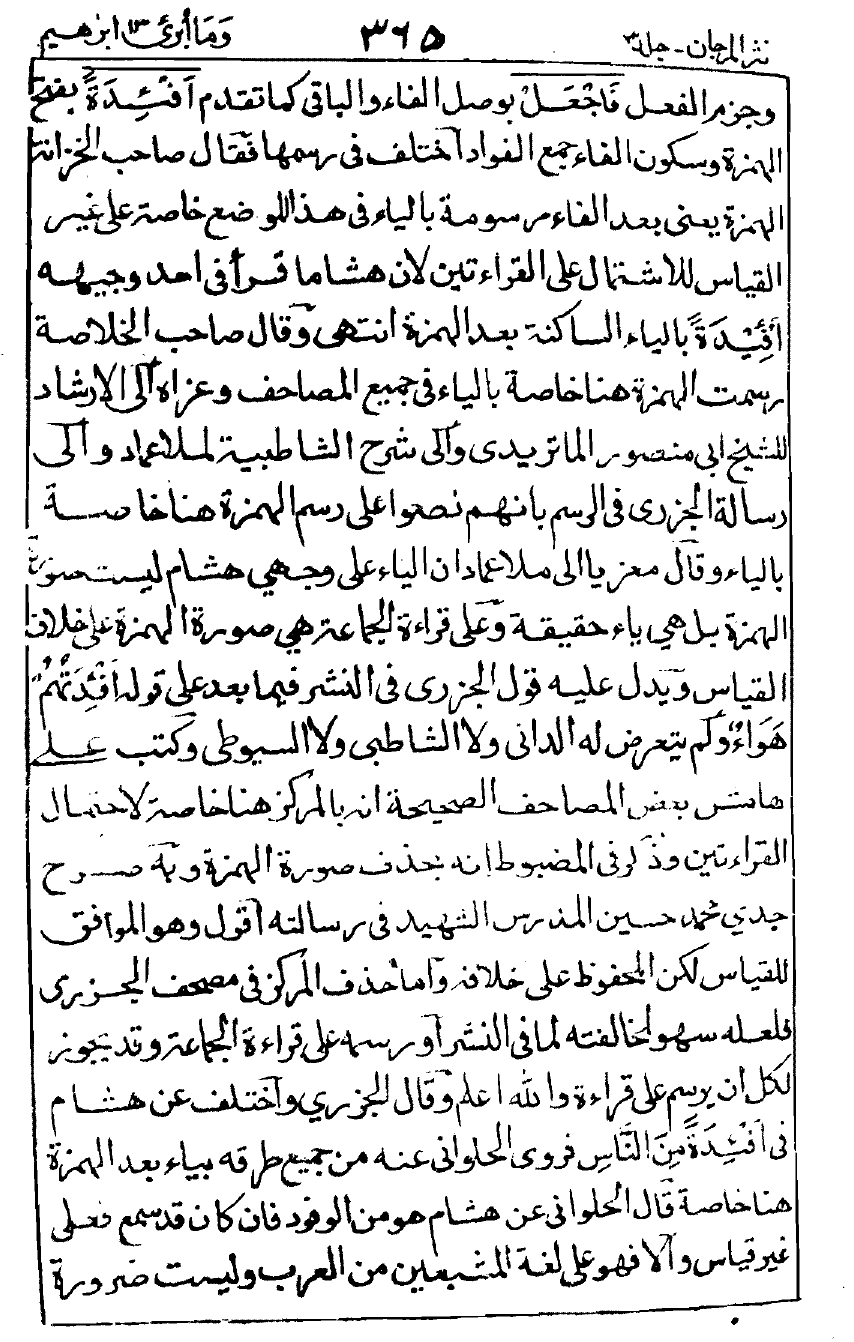 نثر المرجان - جلد ٣ ٣٦٥ وَمَا أُبَرِّئُ ١٣ ابرٰهيم
وجزم الفعل فَاجْعَلْ بوصل الفاء والباقى كما تقدم اَفْئِدَةً بفتح
الهمزة وسكون الفاء جمع الفواد اختلف فى رسمها فقال صاحب الخزانة
الهمزة يعنى بعد الفاء مرسومة بالياء فى هذا اللوضع خاصة على غير
القياس للاشتمال على القراءتين لان هشاما قرأ فى احد وجهيه
أَفْئِيْدَةً بالياء الساكنة بعد الهمزة انتهى وقال صاحب الخلاصة
رسمت الهمزة هنا خاصة بالياء فى جميع المصاحف وعزاه الى الارشاد
للشيخ ابى منصور الماتريدى والى شرح الشاطبية لملا عماد والى
رسالة الجزرى فى الرسم بانهم نصعوا على رسم الهمزة هنا خاصة
بالياء وقال معزيا الى ملا عماد ان الياء على وجهي هشام ليست صورة
الهمزة بل هي ياء حقيقة وعلى قراءة الجماعة هي صورة الهمزة على خلاف
القياس ويدل عليه قول الجزرى فى النشر فيما بعد على قوله اَفْئِدَتُهُمْ
هَوَاءٌ ولم يتعرض له الدانى ولا الشاطبى ولا السيوطى وكتب على
هامش بعض المصاحف الصحيحة انه بالمركز هنا خاصة لاحتمال
القراءتين وذكر فى المضبوط انه بحذف صورة الهمزة وبه صرح
جدي محمد حسين المدرس الشهيد فى رسالته اقول وهو الموافق
للقياس لكن المحفوظ على خلافه واما حذف المركز فى مصحف الجزرى
فلعله سهو لمخالفته لما فى النشر أو رسمه على قراءة الجماعة وقد يجوز
لكل ان يرسم على قراءة والله اعلم وقال الجزري واختلف عن هشام
فى اَفْئِدَةً مِنَ النَّاسِ فروى الحلوانى عنه من جميع طرقه بياء بعد الهمزة
هنا خاصة قال الحلوانى عن هشام هو من الوفود فان كان قد سمع فعلى
غير قياس والا فهو على لغة المشبعين من العرب وليست ضرورة